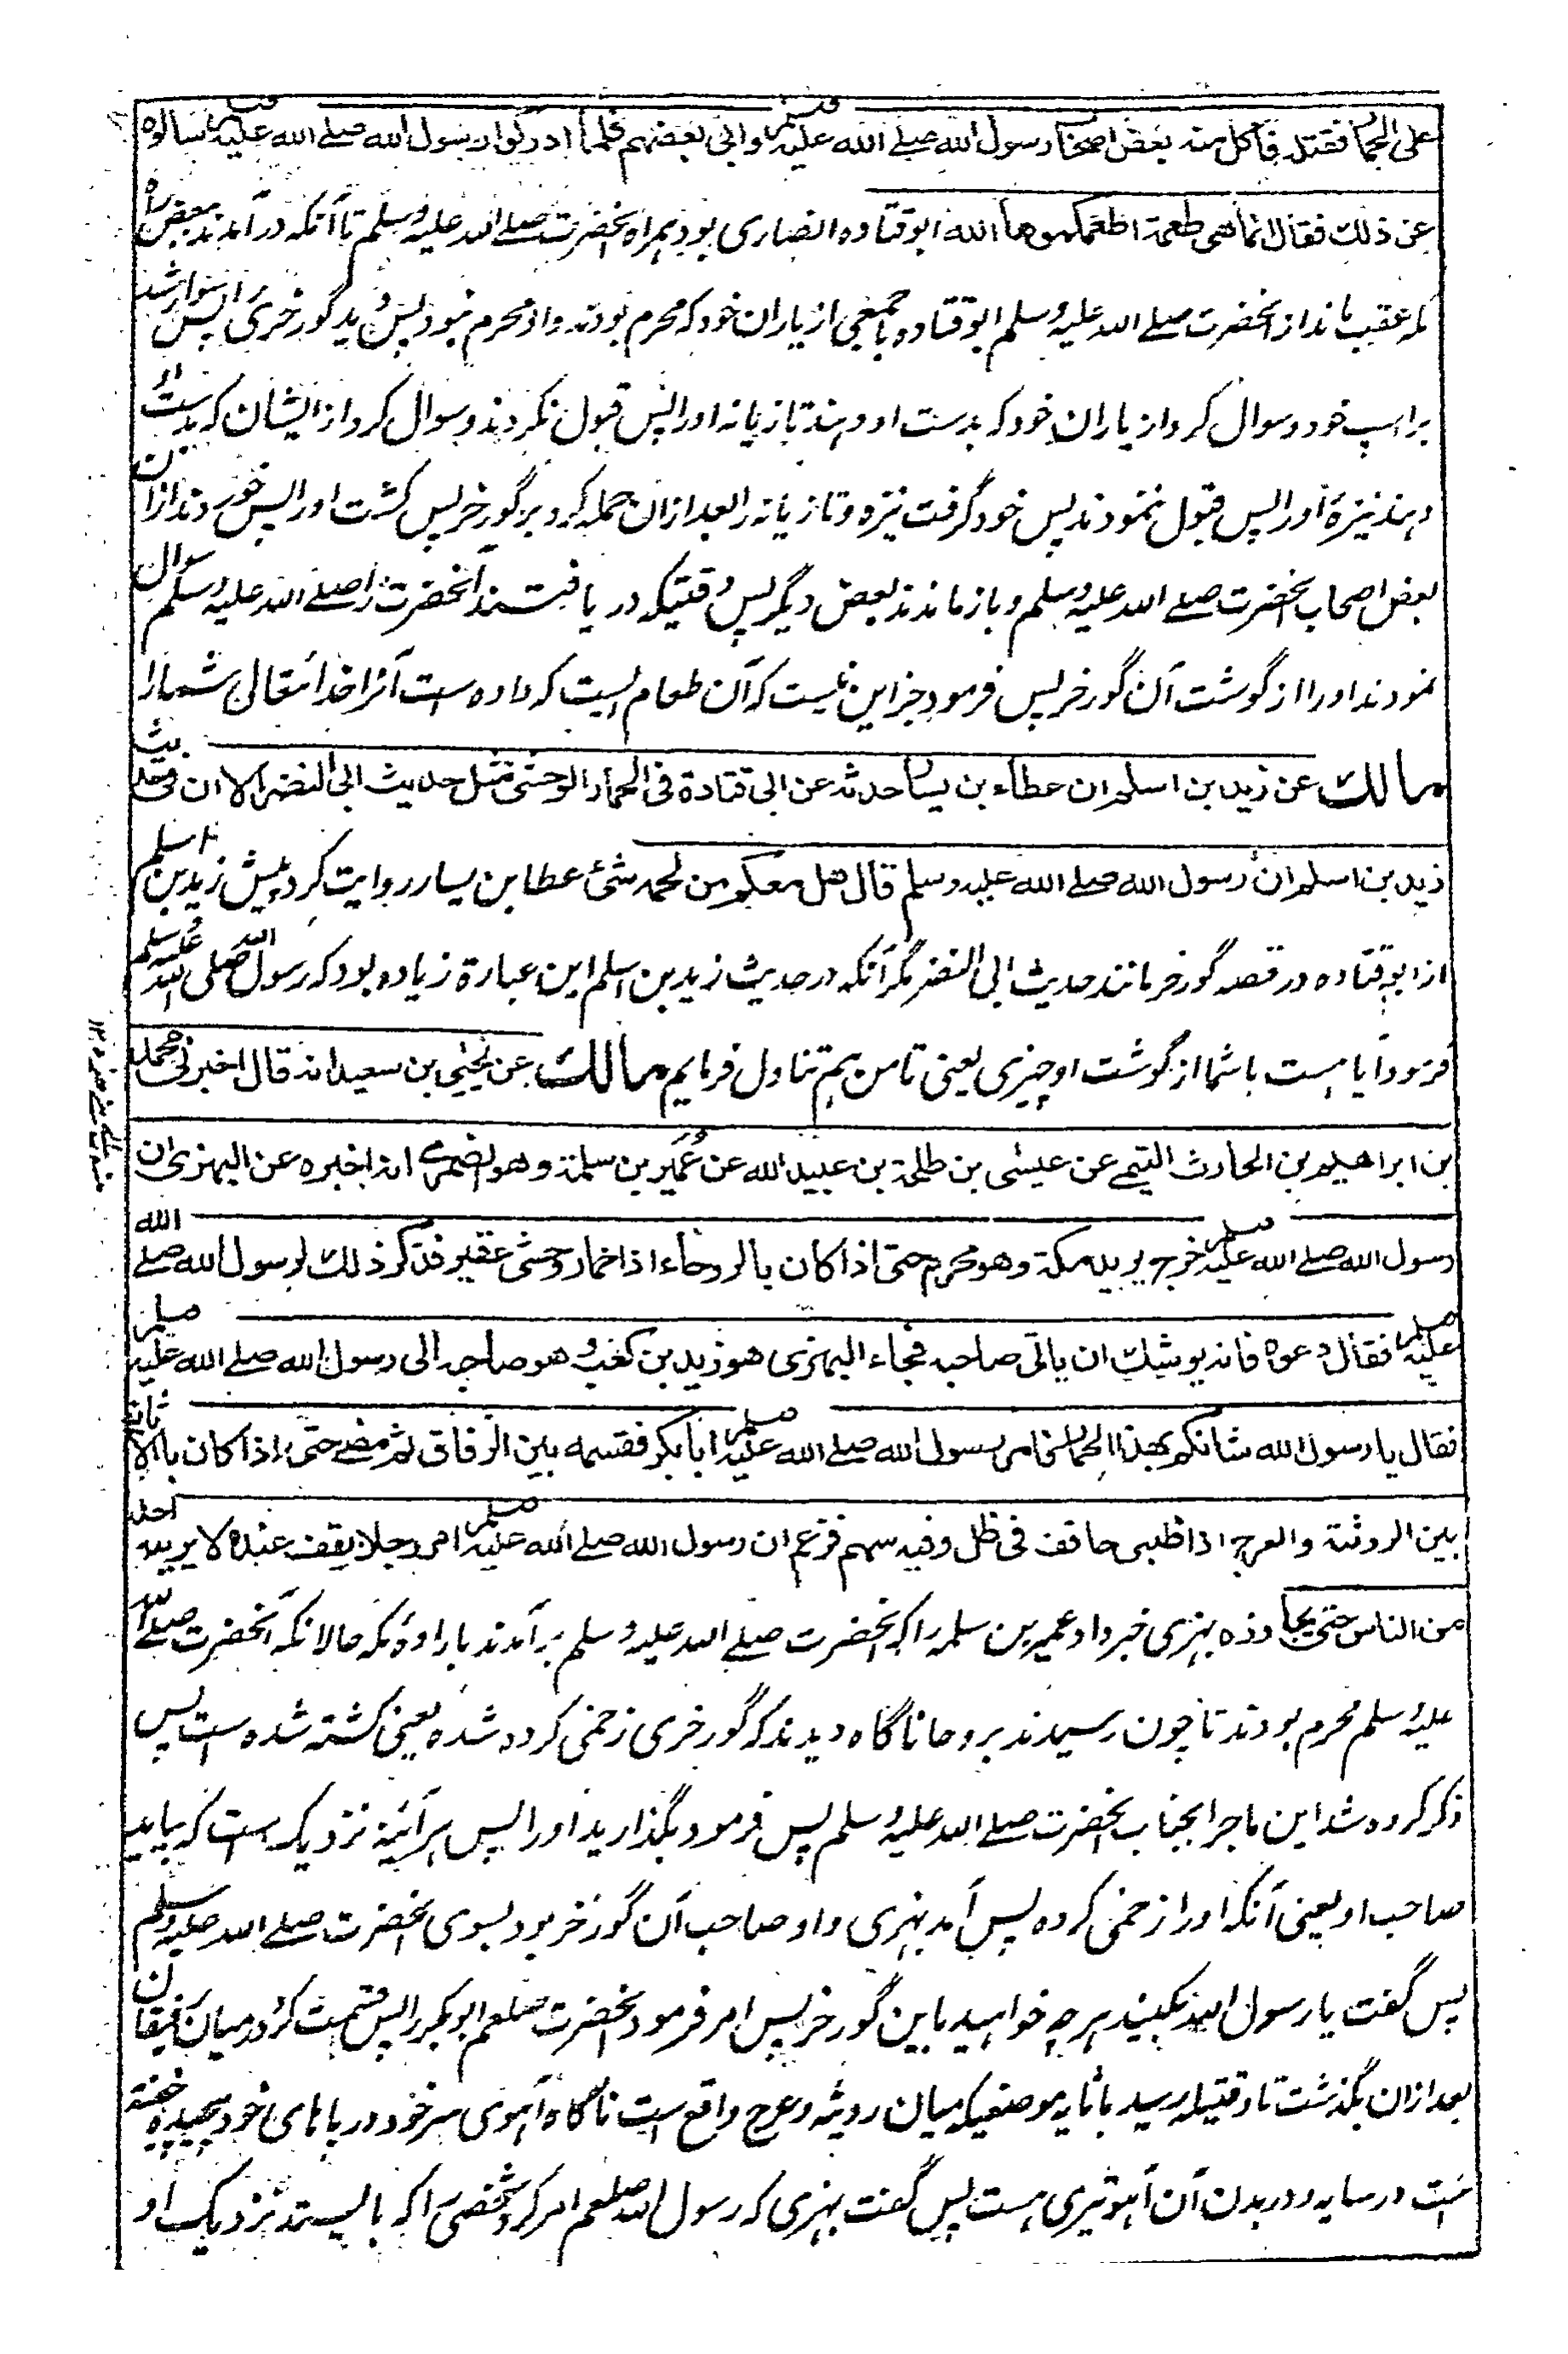 على الحمار فقتله فأكل منه بعض اصحاب رسول الله صلے الله عليه وسلم وابى بعضهم فلما ادركوا رسول الله صلے الله عليه وسلم سالوه
عن ذلك فقال انما هى طعمة اطعمكموها الله ابو قتاده انصارى بود همراه آنحضرت صلے الله عليه وسلم تا آنكه در آمدند بعض راه
مكه عقب ماند از آنحضرت صلے الله عليه وسلم ابو قتاده با جمعى از ياران خود كه محرم بودند و او محرم نبود پس ديد گور خرى را پس سوار شد
بر اسپ خود و سوال كرد از ياران خود كه بدست او دهند تازيانه او را پس قبول نكردند و سوال كرد از ايشان كه بدست او
دهند نيزهٔ او را پس قبول ننمودند پس خود گرفت نيزه و تازيانه را بعد ازان حمله كرد بر گور خر پس كشت او را پس خوردند ازان
بعض اصحاب آنحضرت صلے الله عليه وسلم و باز ماندند بعض ديگر پس وقتيكه دريافتند آنحضرت را صلے الله عليه وسلم سوال
نمودند او را از گوشت آن گور خر پس فرمود جز اين نيست كه آن طعام ايست كه داده ست آنرا خدا تعالى شما را
مالك عن زيد بن اسلم ان عطاء بن يسار حدثه عن ابى قتادة فى الحمار الوحشى مثل حديث ابى النضر الا ان فى حديث
زيد بن اسلم ان رسول الله صلے الله عليه وسلم قال هل معكم من لحمه شئ عطا بن يسار روايت كرد پيش زيد بن اسلم
از ابو قتاده در قصه گور خر مانند حديث ابى النضر مگر آنكه در حديث زيد بن اسلم اين عبارة زياده بود كه رسول الله صلى الله عليه وسلم
فرمود آيا هست با شما از گوشت او چيزى يعنى تا من هم تناول فرمايم مالك عن يحيى بن سعيد انه قال اخبرنى محمد
بن ابراهيم بن الحارث التيمے عن عيسٰى بن طلحة بن عبيد الله عن عُمَير بن سلمة وهو الضمرے انه اخبره عن البهزى ان
رسول الله صلے الله عليه وسلم خرج يريد مكة وهو محرم حتى اذا كان بالروحاء اذا حمار وحشى عقير فذكر ذلك لرسول الله صلے الله
عليه وسلم فقال دعوه فانه يوشك ان ياتى صاحبه فجاء البهزى هو زيد بن كعب وهو صاحبه الى رسول الله صلے الله عليه وسلم
فقال يا رسول الله شانكم بهذا الحمار فامر رسول الله صلے الله عليه وسلم ابا بكر فقسمه بين الرفاق ثم مضے حتى اذا كان بالاثاية
بين الروثة والعرج اذا ظبى حاقف فى ظل وفيه سهم فزعم ان رسول الله صلے الله عليه وسلم امر رجلا يقف عنده لا يريبه احد
من الناس حتى يجاوزه بهزى خبر داد عمير بن سلمه را كه آنحضرت صلے الله عليه وسلم بر آمدند بارادهٔ مكه حالانكه آنحضرت صلے الله
عليه وسلم محرم بودند تا چون رسيدند بروحا ناگاه ديدند كه گور خرى زخمى كرده شده يعنى كشته شده است پس
ذكر كرده شد اين ماجرا بجناب آنحضرت صلے الله عليه وسلم پس فرمود بگذاريد او را پس هر آئينه نزديك ست كه بيايد
صاحب او يعنى آنكه او را زخمى كرده پس آمد بهزى و او صاحب آن گور خر بود بسوى آنحضرت صلے الله عليه وسلم
پس گفت يا رسول الله بكنيد هر چه خواهيد باين گور خر پس امر فرمود آنحضرت صلعم ابو بكر را پس قسمت كرد در ميان رفيقان
بعد ازان بگذشت تا وقتيكه رسيد باثايه موضعيكه ميان رويثه و عرج واقع است ناگاه آهوى سر خود در پاهاى خود پيچيده خفته
ست در سايه و در بدن آن آهو تيرى هست پس گفت بهزى كه رسول الله صلعم امر كرد شخصى را كه بايستد نزديك او